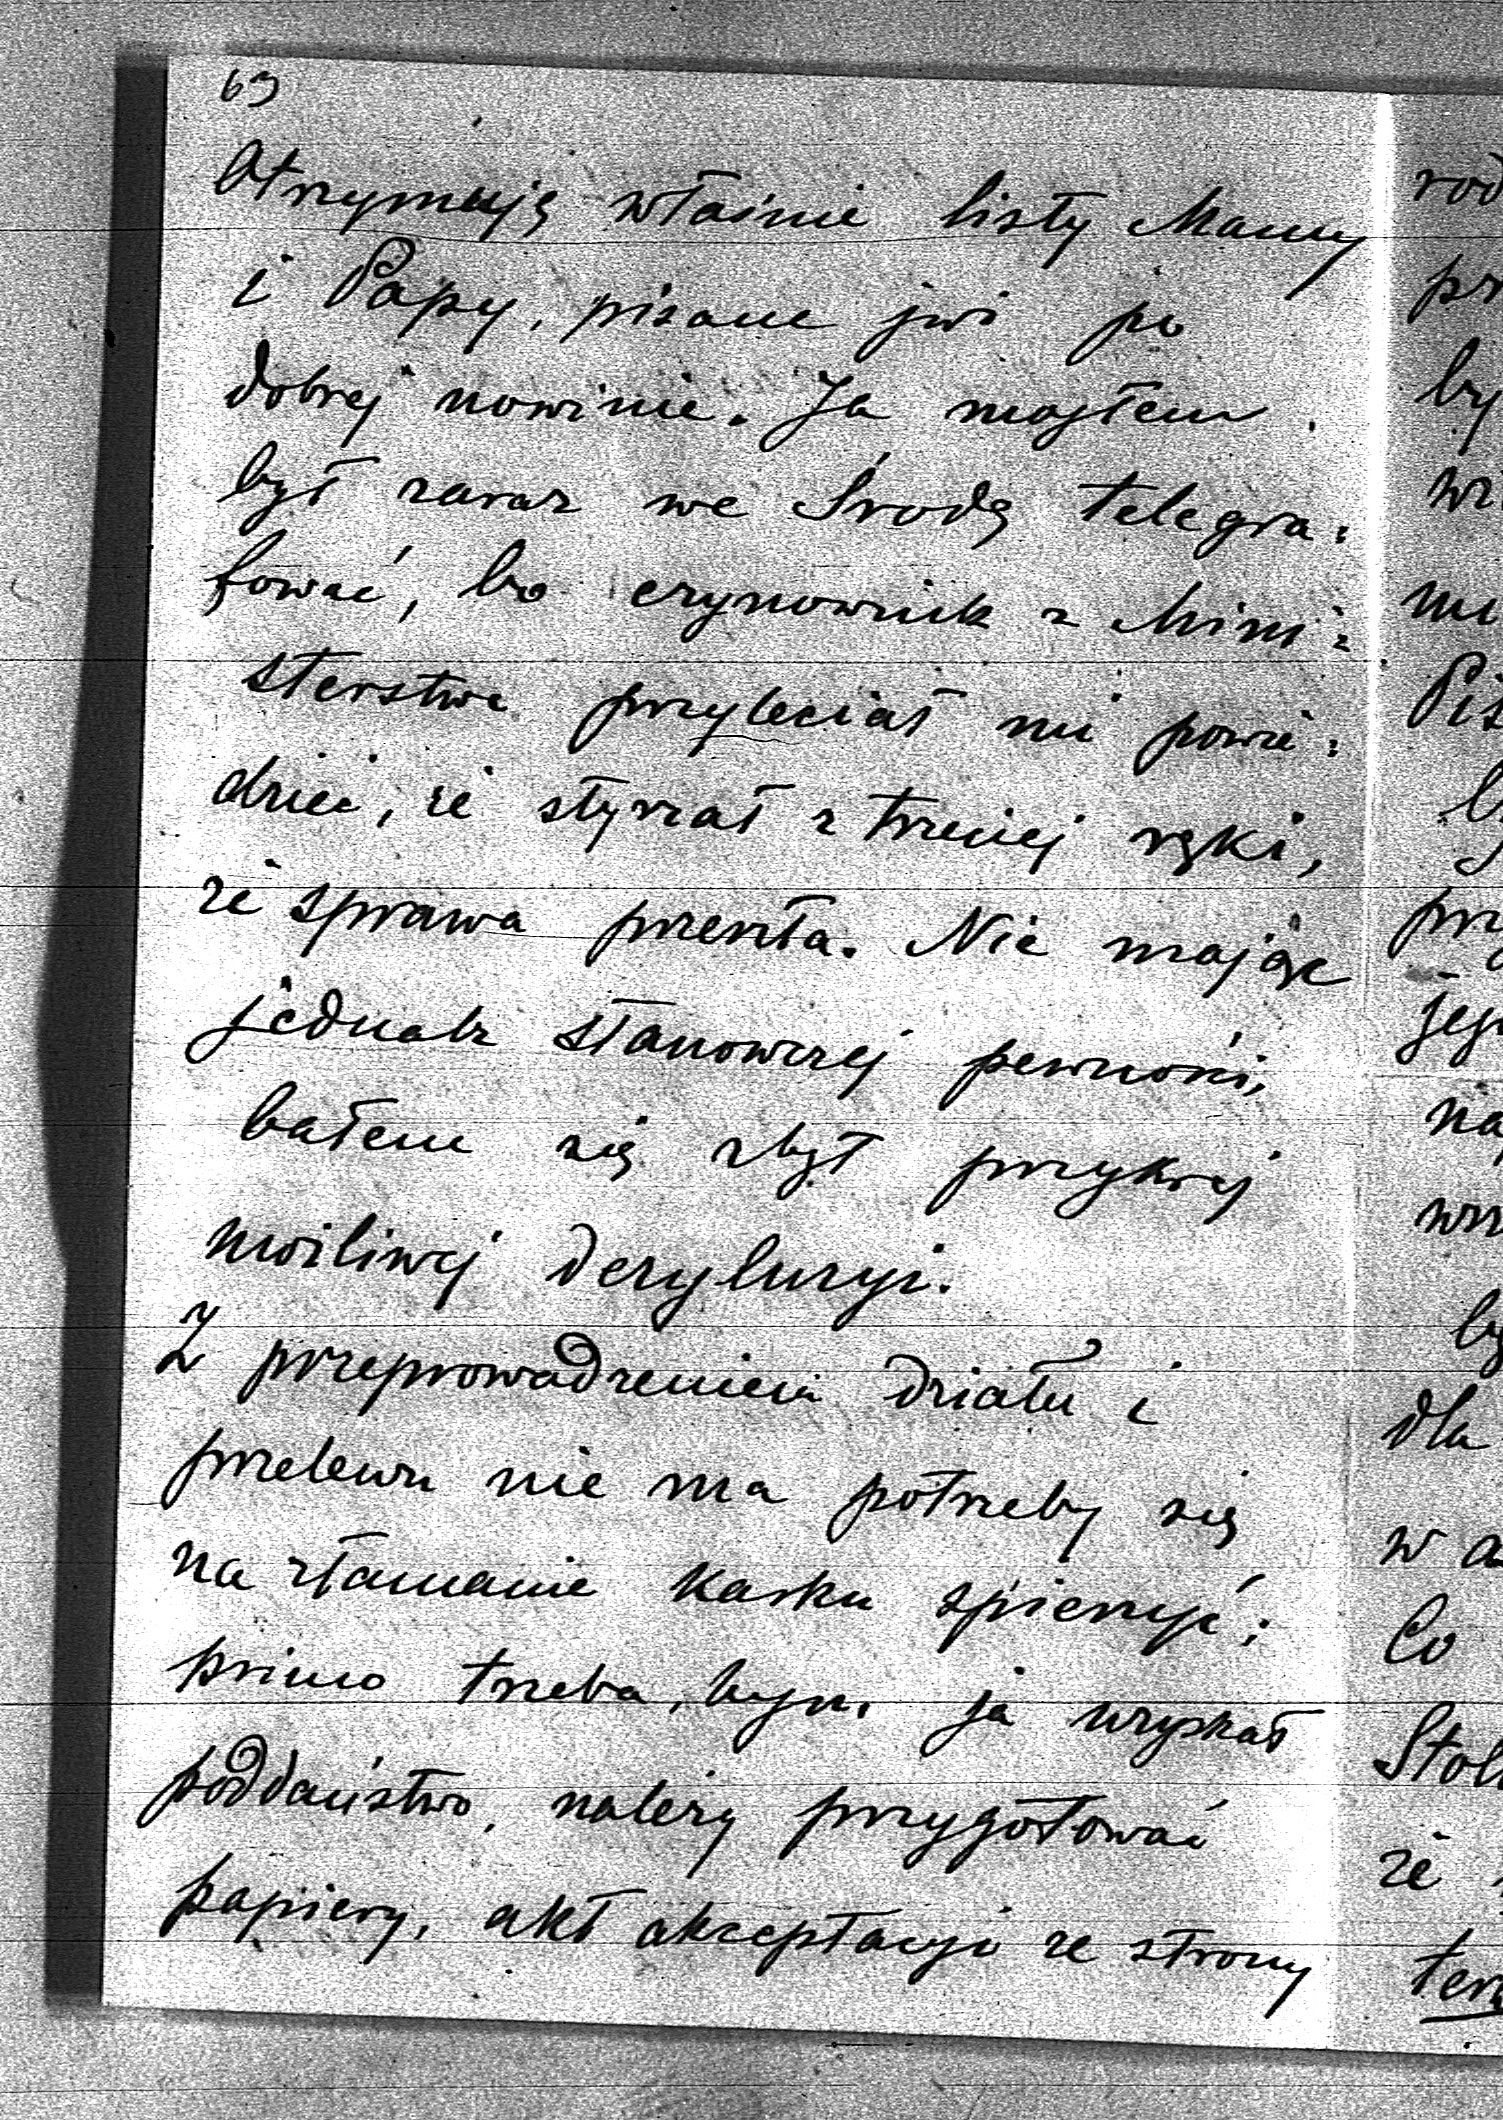 63
Otrzymuję właśnie listy Mamy
i Papy, pisane już po
dobrej nowinie. Ja mogłem
był zaraz we Środę telegra-
fować, bo czynownik z Mini-
sterstwa przyleciał mi powie-
dzieć, że słyszał z trzeciej ręki,
że sprawa przeszła. Nie mając
jednak stanowczej pewności,
bałem się zbyt przykrej
możliwej dezyluzyi.
Z przeprowadzeniem działu i
przelewu nie ma potrzeby się
na złamanie karku śpieszyć;
primo trzeba, bym ja uzyskał
poddaństwo, należy przygotować
papiery, akt akceptacyi ze strony
rod
pr
by
wz
mi
Pis
prz
jeg
na
by
dla
w a
Co
Stol
że
ter